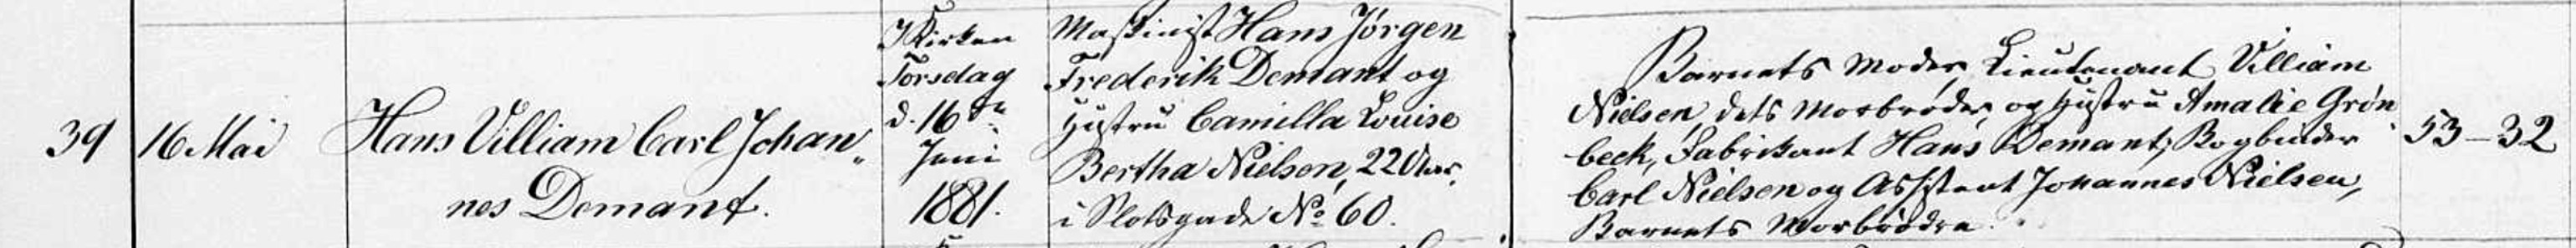 39
16 Mai
Hans Villiam Carl Johan„
nes Demant.
I Kirken
Torsdag
d. 16de
Juni
1881.
Maskinist Hans Jørgen
Frederik Demant og
Hustru Camilla Louise
Bertha Nielsen, 22 Aar,
i Slotsgade No 60.
Barnets Moder, Lieutenant Villiam
Nielsen, dets Morbroder, og Hustru Amalie Grøn
beck, Fabrikant Hans Demant, Bogbinder
Carl Nielsen og Assistent Johannes Nielsen,
Barnets Morbrødre.
53-32